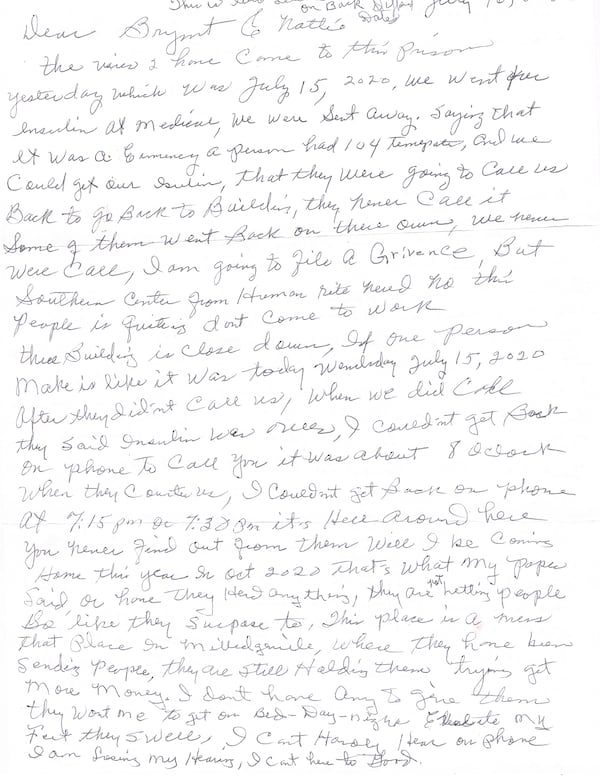 on Back July
Dear Brynt & Natlie Date
the virus I have Come to this Prison
yesterday which was July 15, 2020, we went for
Insulin at Medical, we were Sent Away. Saying that
it was a Person had 104 and we
Could get our Isulin, that they were going to Call us
Back to go Back to Building, they never Call it
Some of them went Back on there own, we never
were Call, I am going to file A Grivance, But
Southern Center from Human rite need No this
People is quiting dont Come to work
this Building is Close down, If one Person
Make is like it was today Wendsday July 15, 2020
After they didnt Call us, when we did Call
they Said Insulin was over, I couldnt get Back
on phone to Call You it was about 8 Oclock
when they Counte us, I Couldnt get Back on phone
At 7:15 pm or 7:30 pm it is Here around here
You never find out from them will I be Coming
Home this year In oct 2020 that's what my Paper
Said or have they Herd anything, they are not letting people
Go like they Surpose to, This place is a mess
that Place In Milledgevile, where they have been
Sending People, they are still Holding them trying get
More Money. I dont have Any to give them
they Wont me to get on Bed-Day-nights My
Feet they Swell, I Cant Hardly Hear on phone
I am losing my Hearing, I cant here to Good.